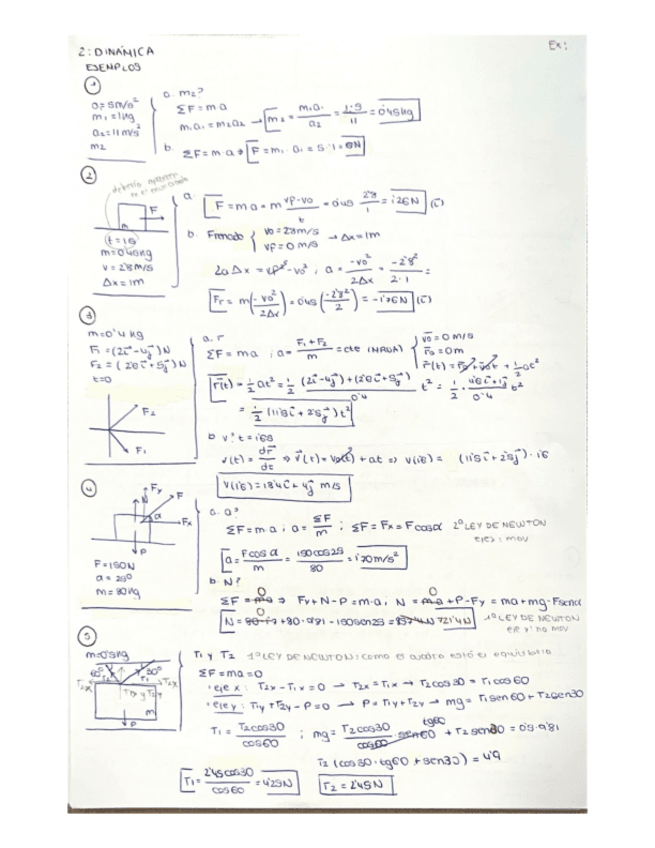 2: DINÁMICA
EJEMPLOS
Ex:
1
a₁=5m/s²
m₁=1kg
a₂=11m/s²
m₂
a. m₂?
ΣF=ma
m₁a₁=m₂a₂ → m₂ = m₁a₁/a₂ = 1·5/11 = 0'45kg
b. ΣF=m·a → F=m₁·a₁=5·1=5N
2
F
m
t=1s
m=0'45kg
v=2'8m/s
Δx=1m
a. F=ma=m (vf-vo)/t = 0'45 2'8/1 = 1'26N (i)
b. Frenado { vo=2'8m/s
vf=0 m/s → Δx=1m
2aΔx = vf²-vo² ; a = -vo²/2Δx = -2'8²/2·1 =
Fr = m(-vo²/2Δx) = 0'45(-2'8²/2) = -1'76N (i)
3
m=0'4 kg
F₁=(2i-4j)N
F₂=(2'6i+5j)N
t=0
F₂
F₁
a. r
ΣF=ma ; a = (F₁+F₂)/m = cte (MRUA) { vo=0 m/s
ro=0m
r(t)=ro+vot+½at²
r(t)=½at²=½ ((2i-4j)+(2'6i+5j))/0'4 t² = ½·(4'6i+1j)/0'4 t²
= ½ (11'5i+2'5j)t²
b v? t=1'6s
v(t)=dr/dt ⇒ v(t)=vo(t)+at ⇒ v(1'6)= (11'5i+2'5j)·1'6
v(1'6)=18'4i+4j m/s
4
N
Fy
F
α
Fx
P
F=150N
α=25º
m=80kg
a. a?
ΣF=ma ; a=ΣF/m ; ΣF=Fx=Fcosα 2º LEY DE NEWTON
eje x: mov
a = Fcosα/m = 150cos25/80 = 1'70m/s²
b. N?
ΣF=ma ⇒ Fy+N-P=m·a ; N=ma+P-Fy = ma+mg-Fsenα
N = +80·9'81-150sen25= 721'4N 1º LEY DE NEWTON
eje y: no mov
5
m=0'5kg
60º
30º
T₂x
T₁
T₂x
T₁y T₂y
m
P
T₁ y T₂ 1º LEY DE NEWTON: como el cuadro está en equilibrio
ΣF=ma=0
· eje x: T₂x-T₁x=0 → T₂x=T₁x → T₂cos30=T₁cos60
· eje y: T₁y+T₂y-P=0 → P=T₁y+T₂y → mg=T₁sen60+T₂sen30
T₁ = T₂cos30/cos60 ; mg = T₂cos30/cos60·sen60 + T₂sen30 = 0'5·9'81
tg60
T₂(cos30·tg60+sen30)=4'9
T₁ = 2'45cos30/cos60 = 4'25N
T₂=2'45N